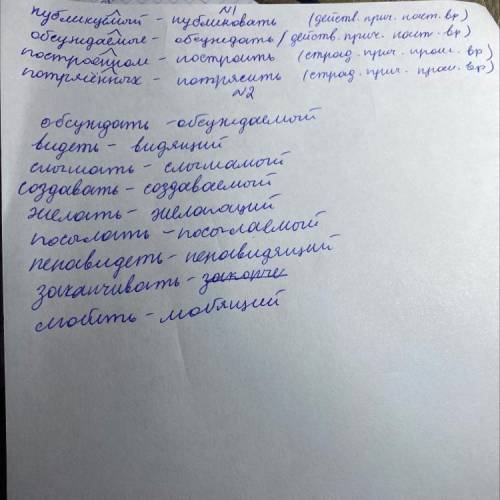 №1
публикуемый - публиковать (действ. прич. наст. вр)
обсуждаемые - обсуждать (действ. прич. наст. вр)
построенном - построить (страд. прич. прош. вр)
потрясённых - потрясить (страд. прич. прош. вр)
№2
обсуждать - обсуждаемый
видеть - видящий
слышать -
создавать - создаваемый
желать - желающий
посылать - посылаемый
ненавидеть - ненавидящий
заканчивать -
любить - любящий